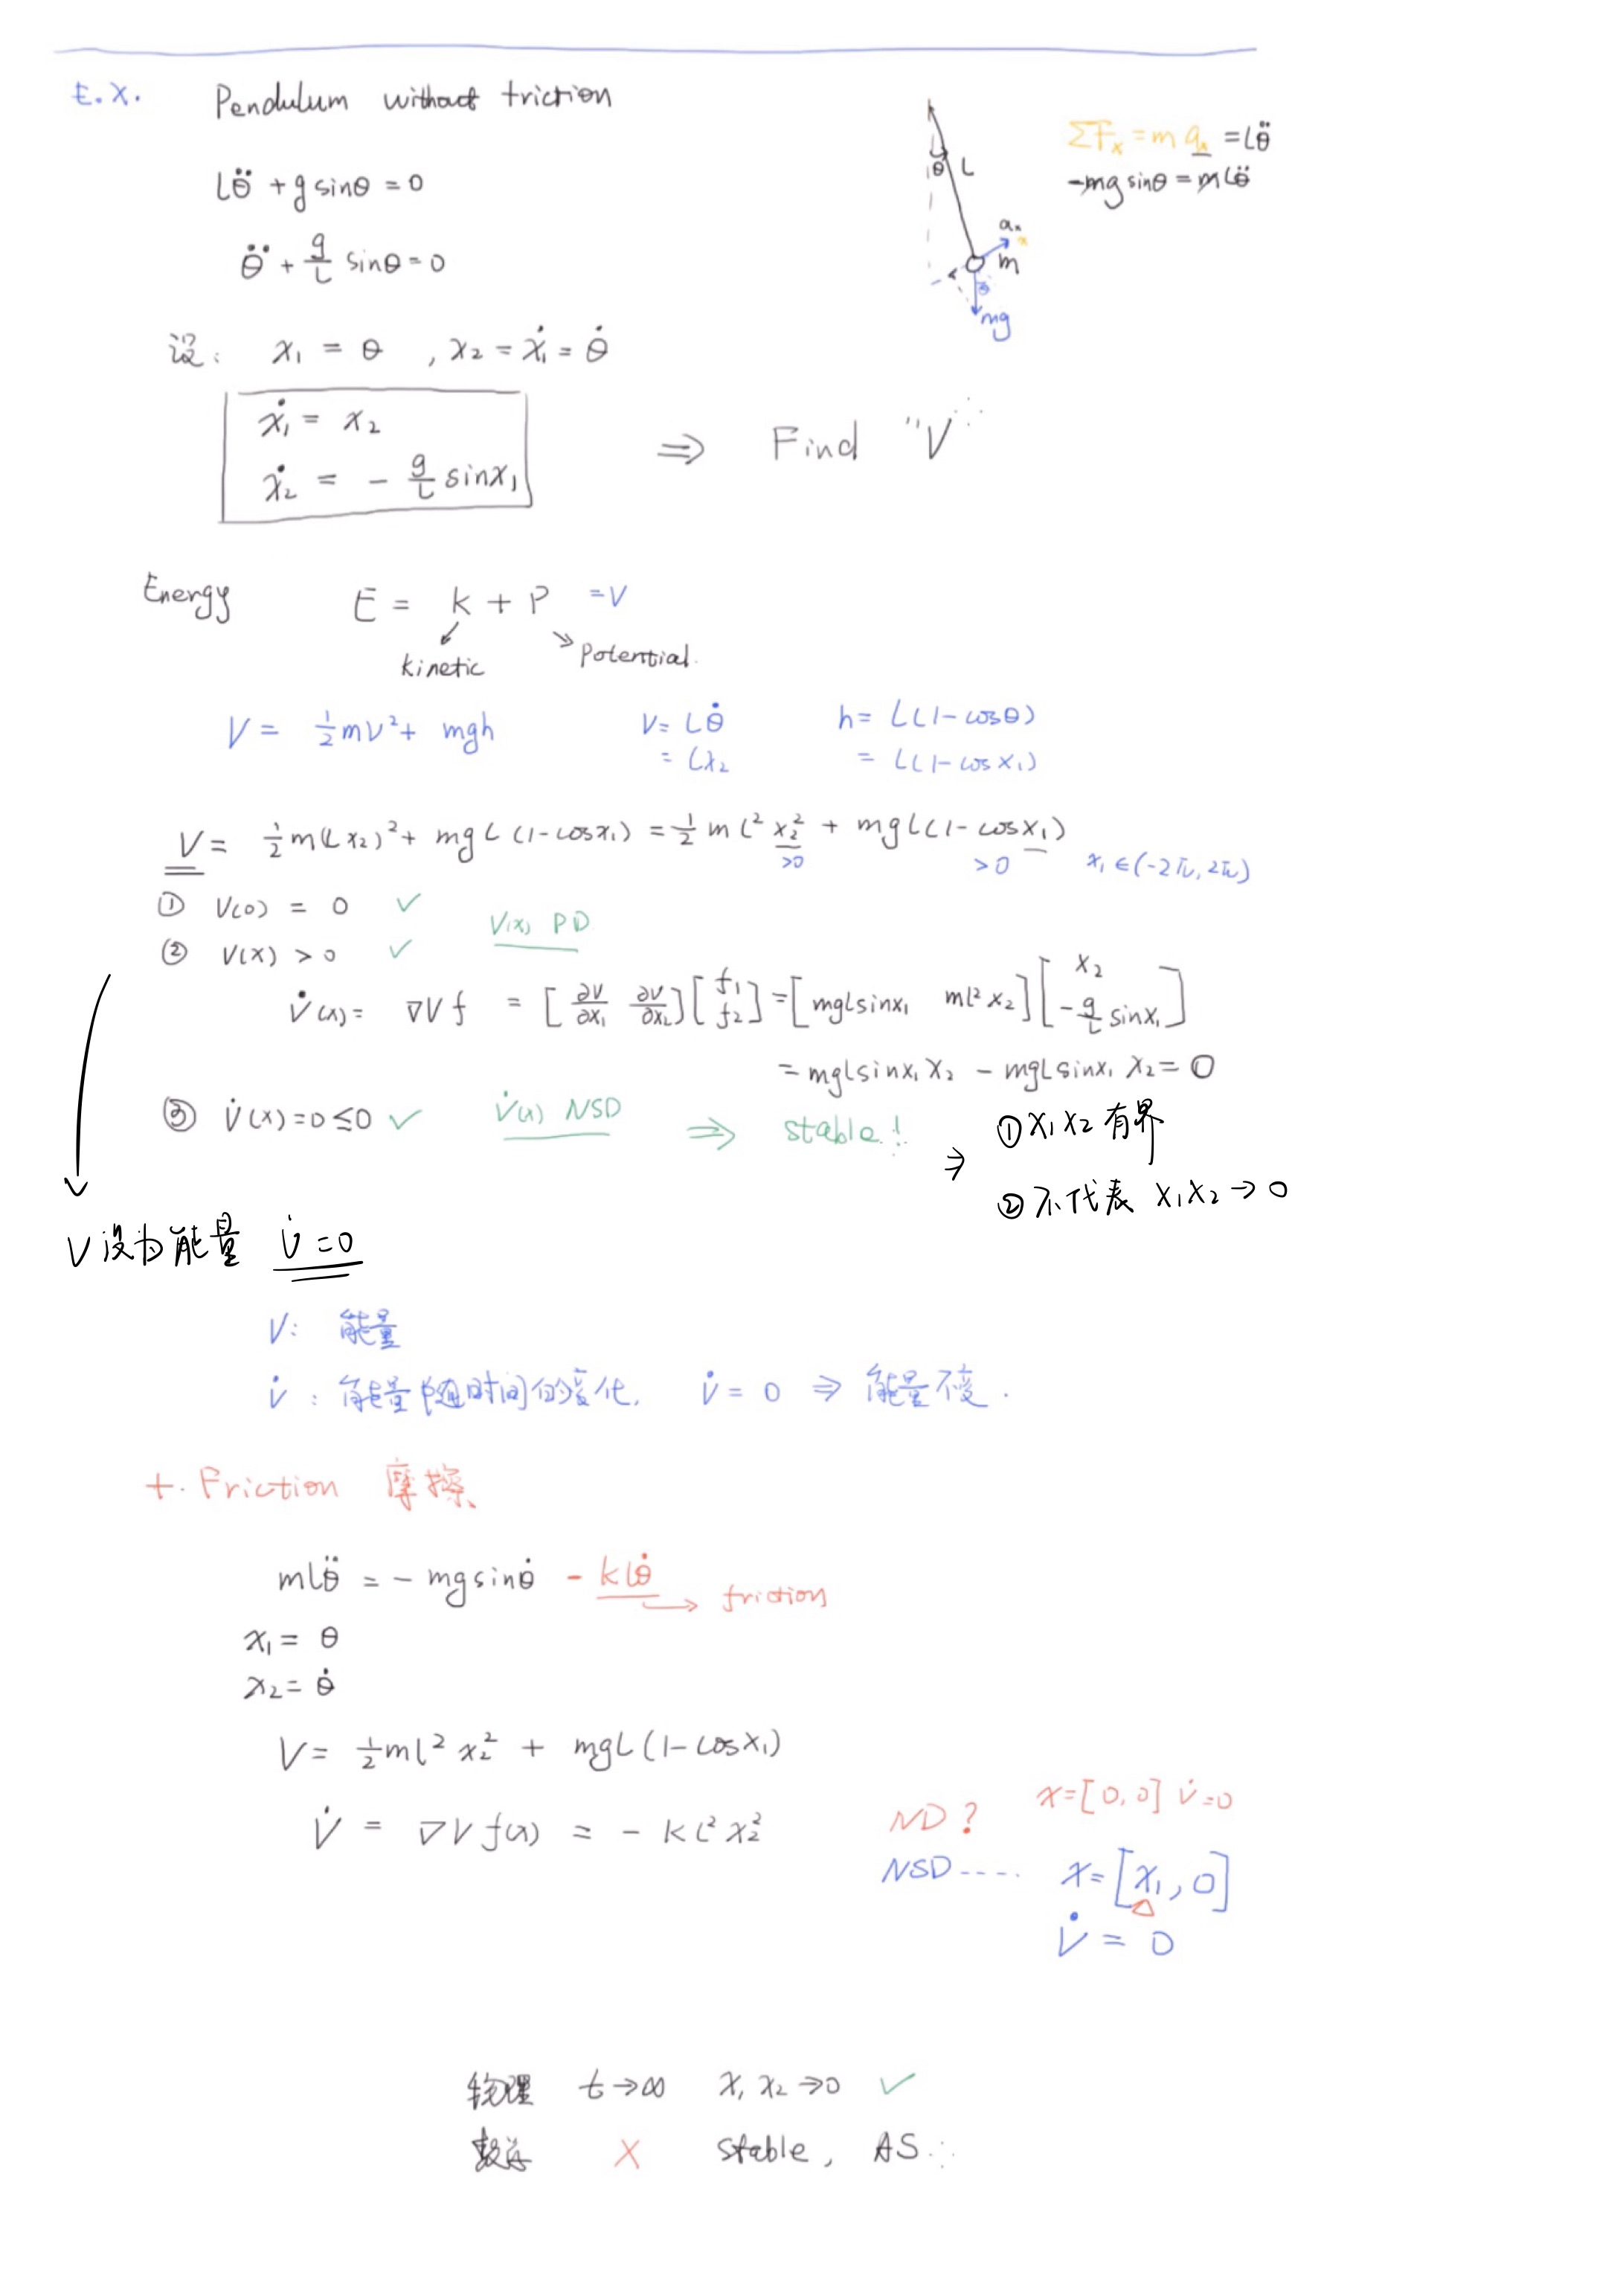 E.X. Pendulum without friction
Lθ̈ + g sinθ = 0
θ̈ + g/L sinθ = 0
θ L
aₙ
x
m
θ
mg
ΣFₓ = m aₙ = Lθ̈
-mg sinθ = mLθ̈
设: x₁ = θ , x₂ = ẋ₁ = θ̇
ẋ₁ = x₂
ẋ₂ = - g/L sinx₁
⇒ Find "V"
Energy E = K + P = V
kinetic
potential.
V = ½mv² + mgh v = Lθ̇ h = L(1-cosθ)
= Lx₂ = L(1-cosx₁)
V = ½m(Lx₂)² + mgL(1-cosx₁) = ½ m L² x₂² + mgL(1-cosx₁)
>0 >0 x₁ ∈ (-2π, 2π)
① V(0) = 0 ✓
② V(x) > 0 ✓ V(x) PD
V̇(x) = ∇V f = [∂V/∂x₁ ∂V/∂x₂] [f₁ f₂] = [mgLsinx₁ mL²x₂] [x₂ -g/L sinx₁]
= mgLsinx₁x₂ - mgLsinx₁x₂ = 0
③ V̇(x) = 0 ≤ 0 ✓ V̇(x) NSD ⇒ stable!
⇒ ① x₁x₂ 有界
② 不代表 x₁x₂ → 0
V 设为能量 V̇ = 0
V: 能量
V̇: 能量随时间的变化, V̇ = 0 ⇒ 能量不变.
+. Friction 摩擦
mLθ̈ = - mg sinθ̇ - kLθ̇
→ friction
x₁ = θ
x₂ = θ̇
V = ½mL² x₂² + mgL(1-cosx₁)
V̇ = ∇V f(x) = - kL² x₂²
ND? x = [0, 0] V̇ = 0
NSD ---- x = [x₁, 0]
V̇ = 0
物理 t→∞ x₁ x₂ → 0 ✓
数学 X stable, AS